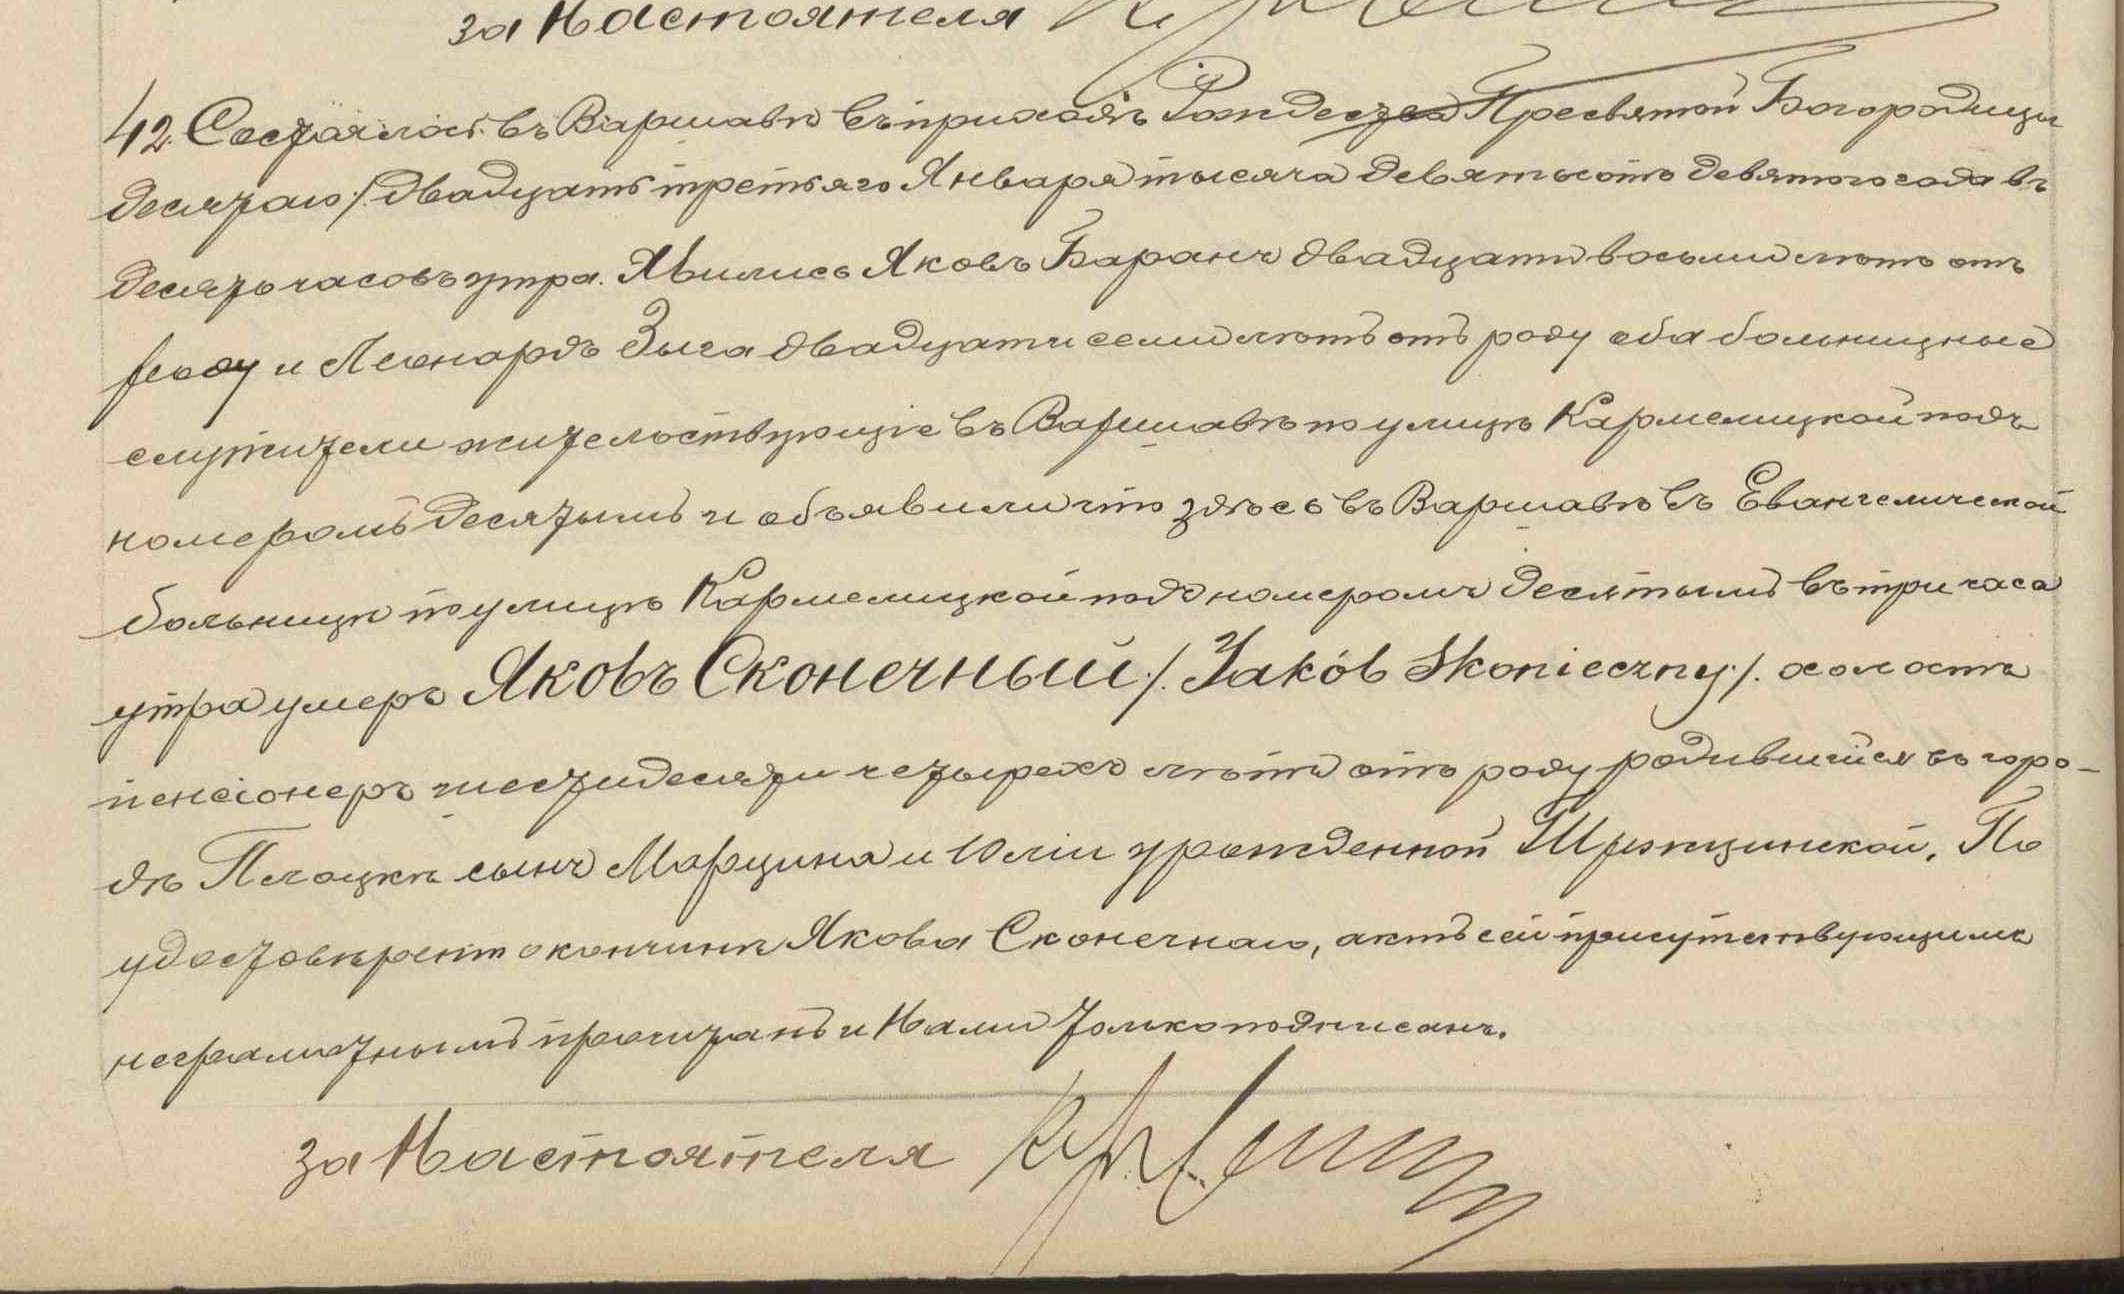 за Настоятеля
42. Состоялось въ Варшавѣ въ приходѣ Рождества Пресвятой Богородицы
десятаго /: двадцать третьяго Января тысяча девятьсотъ девятого года въ
десять часовъ утра. Явились Яковъ Баранъ двадцати восьми лѣтъ отъ
роду и Леонардъ Зыга двадцати семи лѣтъ отъ роду оба больничные
служители жительствующіе въ Варшавѣ по улицѣ Кармелицкой подъ
номеромъ десятымъ и объявили что здѣсь въ Варшавѣ въ Евангелической
больницѣ по улицѣ Кармелицкой подъ номеромъ десятымъ въ три часа
утра умеръ Яковъ Сконечный /: Jakób Skonieczny :/. холостъ
пенсіонеръ шестидесяти четырехъ лѣтъ отъ роду родившійся въ горо-
дѣ Плоцкѣ сынъ Марцина и Юліи урожденной. По
удостовѣреніи о кончинѣ Якова Сконечнаго, актъ сей присутствующимъ
неграмотнымъ прочитанъ и Нами только подписанъ.
за Настоятеля